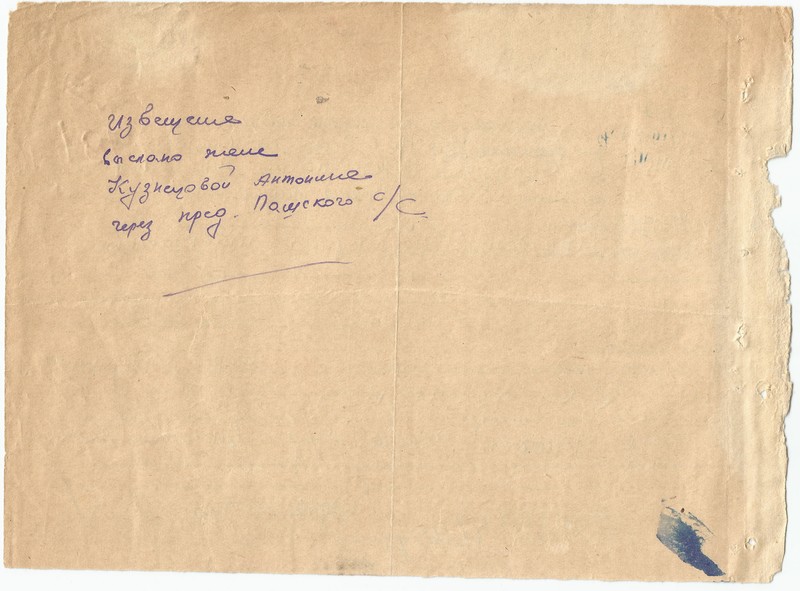 Извещение
выслано жене
Кузнецовой Антонине
через пред. Пашского с/с.